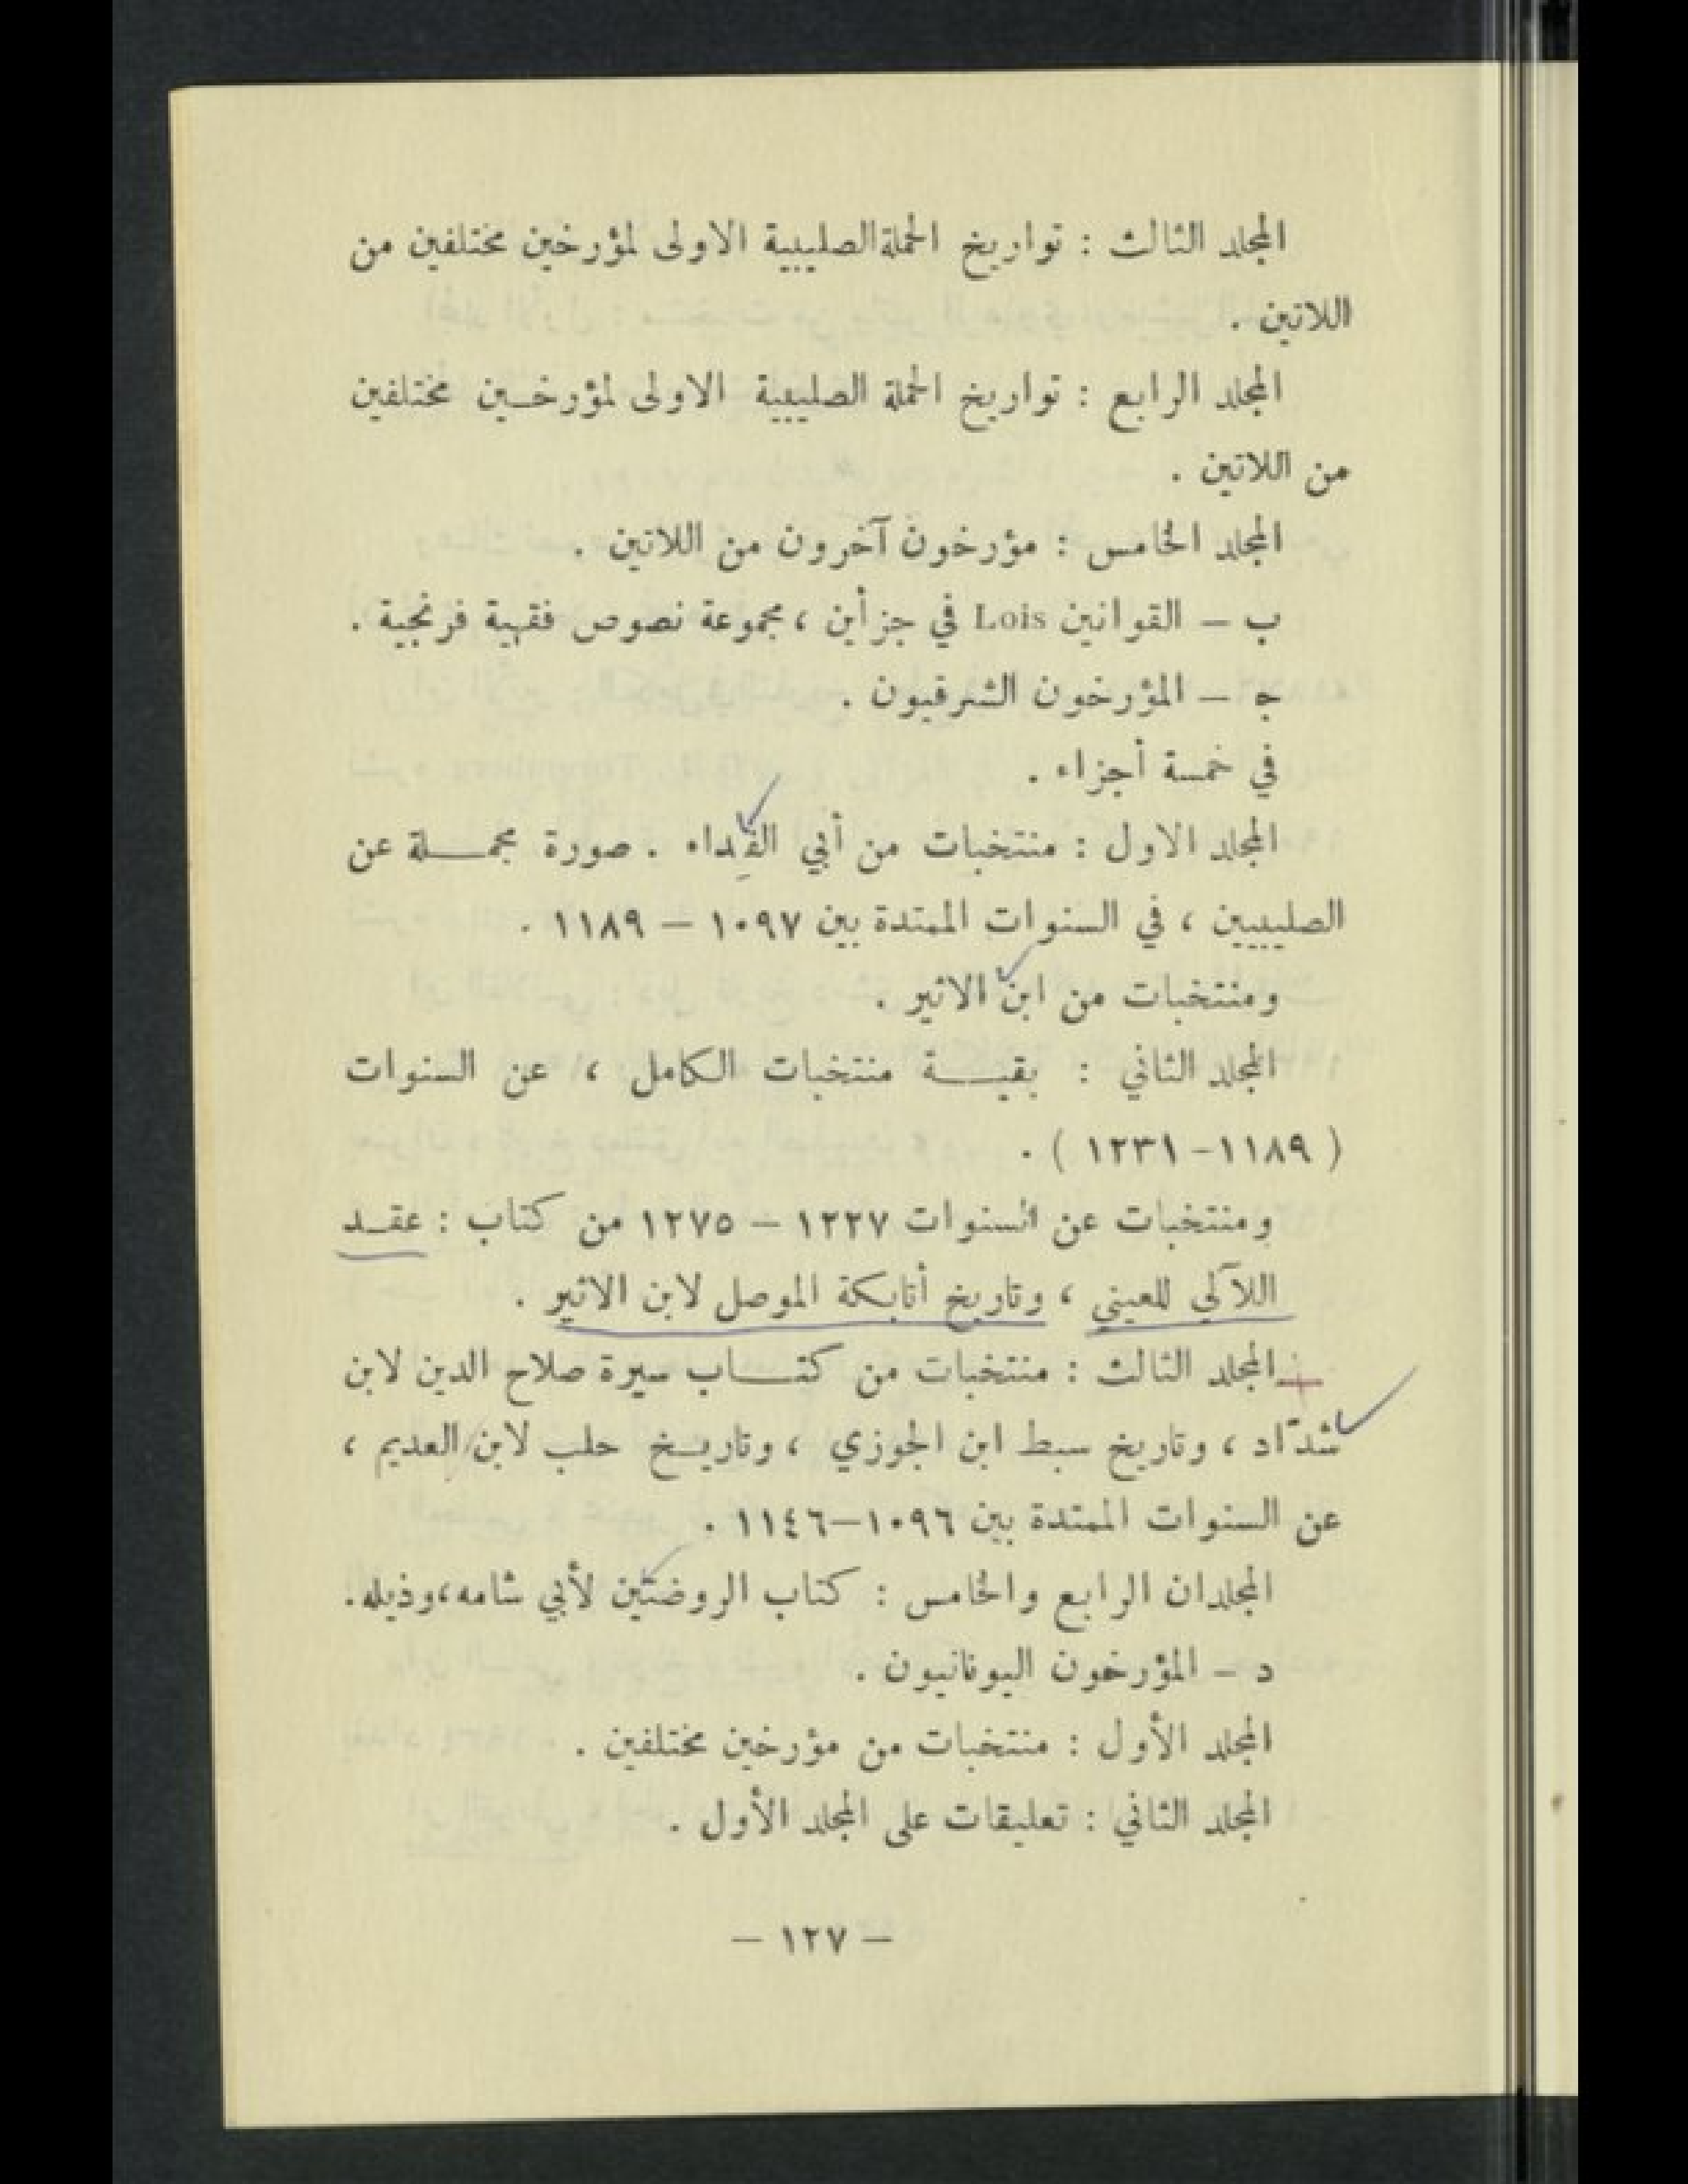 المجلد الثالث : تواريخ الحملة الصليبية الاولى لمؤرخين مختلفين من
اللاتين .
المجلد الرابع : تواريخ الحملة الصليبية الاولى لمؤرخين مختلفين
من اللاتين .
المجلد الخامس : مؤرخون آخرون من اللاتين .
ب – القوانين Lois في جزأين ، مجموعة نصوص فقهية فرنجية .
ج – المؤرخون الشرقيون .
في خمسة أجزاء .
المجلد الاول : منتخبات من أبي الفداء . صورة مجملة عن
الصليبيين ، في السنوات الممتدة بين ١٠٩٧ – ١١٨٩ .
ومنتخبات من ابن الاثير .
المجلد الثاني : بقية منتخبات الكامل ، عن السنوات
( ١١٨٩ – ١٢٣١ ) .
ومنتخبات عن السنوات ١٢٢٧ – ١٢٧٥ من كتاب : عقد
اللآلي للعيني ، وتاريخ أتابكة الموصل لابن الاثير .
المجلد الثالث : منتخبات من كتاب سيرة صلاح الدين لابن
شدّاد ، وتاريخ سبط ابن الجوزي ، وتاريخ حلب لابن العديم ،
عن السنوات الممتدة بين ١٠٩٦–١١٤٦ .
المجلدان الرابع والخامس : كتاب الروضتين لأبي شامه ، وذيله .
د – المؤرخون اليونانيون .
المجلد الأول : منتخبات من مؤرخين مختلفين .
المجلد الثاني : تعليقات على المجلد الأول .
– ١٢٧ –